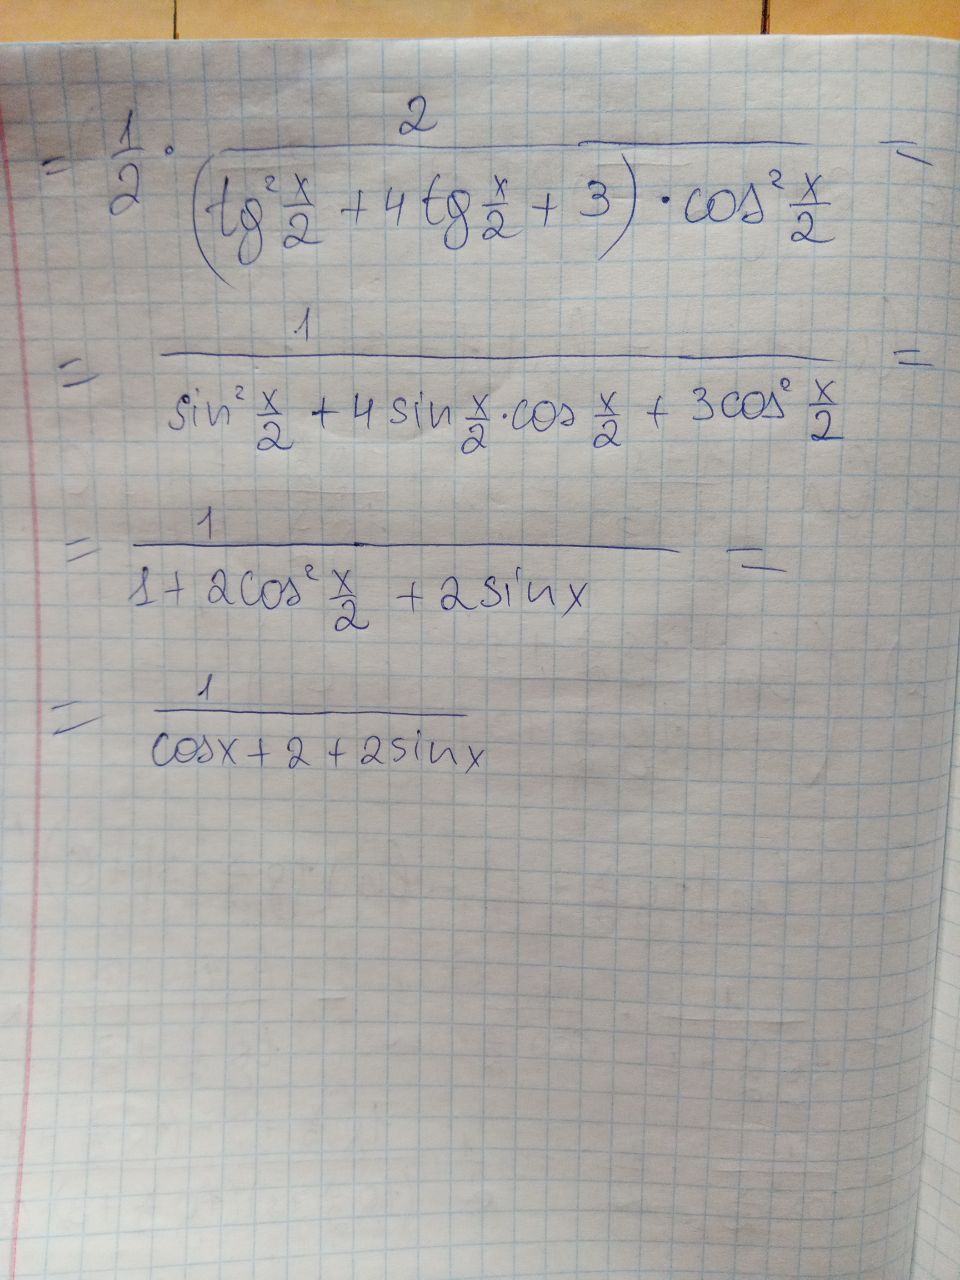 = 1/2 · 2/((tg² x/2 + 4 tg x/2 + 3) · cos² x/2) =
= 1/(sin² x/2 + 4 sin x/2 · cos x/2 + 3cos² x/2) =
= 1/(1 + 2cos² x/2 + 2sinx) =
= 1/(cosx + 2 + 2sinx)